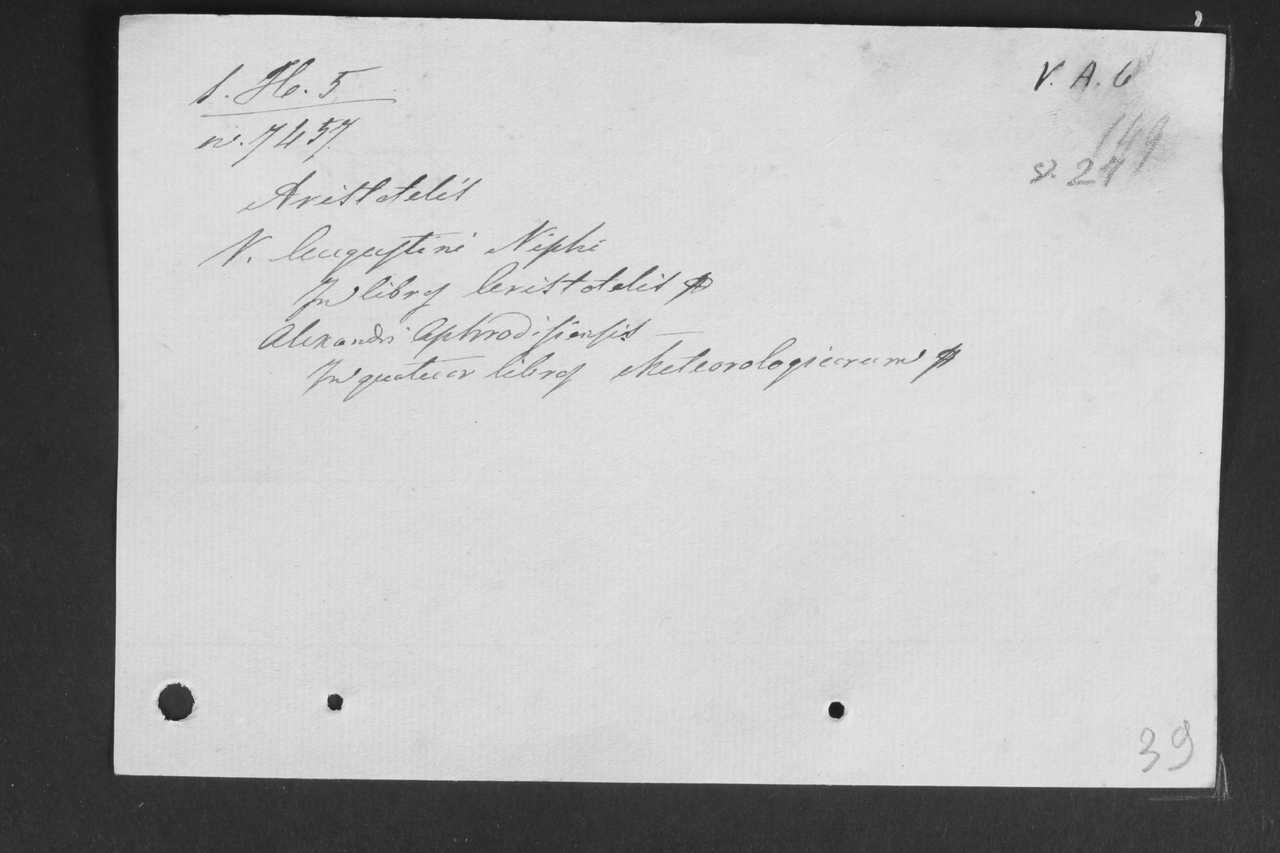 s. H. 5
n. 7457.
V. A. 6
149
s. 24
Aristotelis
V. Augustini Niphi
In libros Aristotelis
Alexandri Aphrodisiensis —
In quatuor libros Meteorologicorum
39